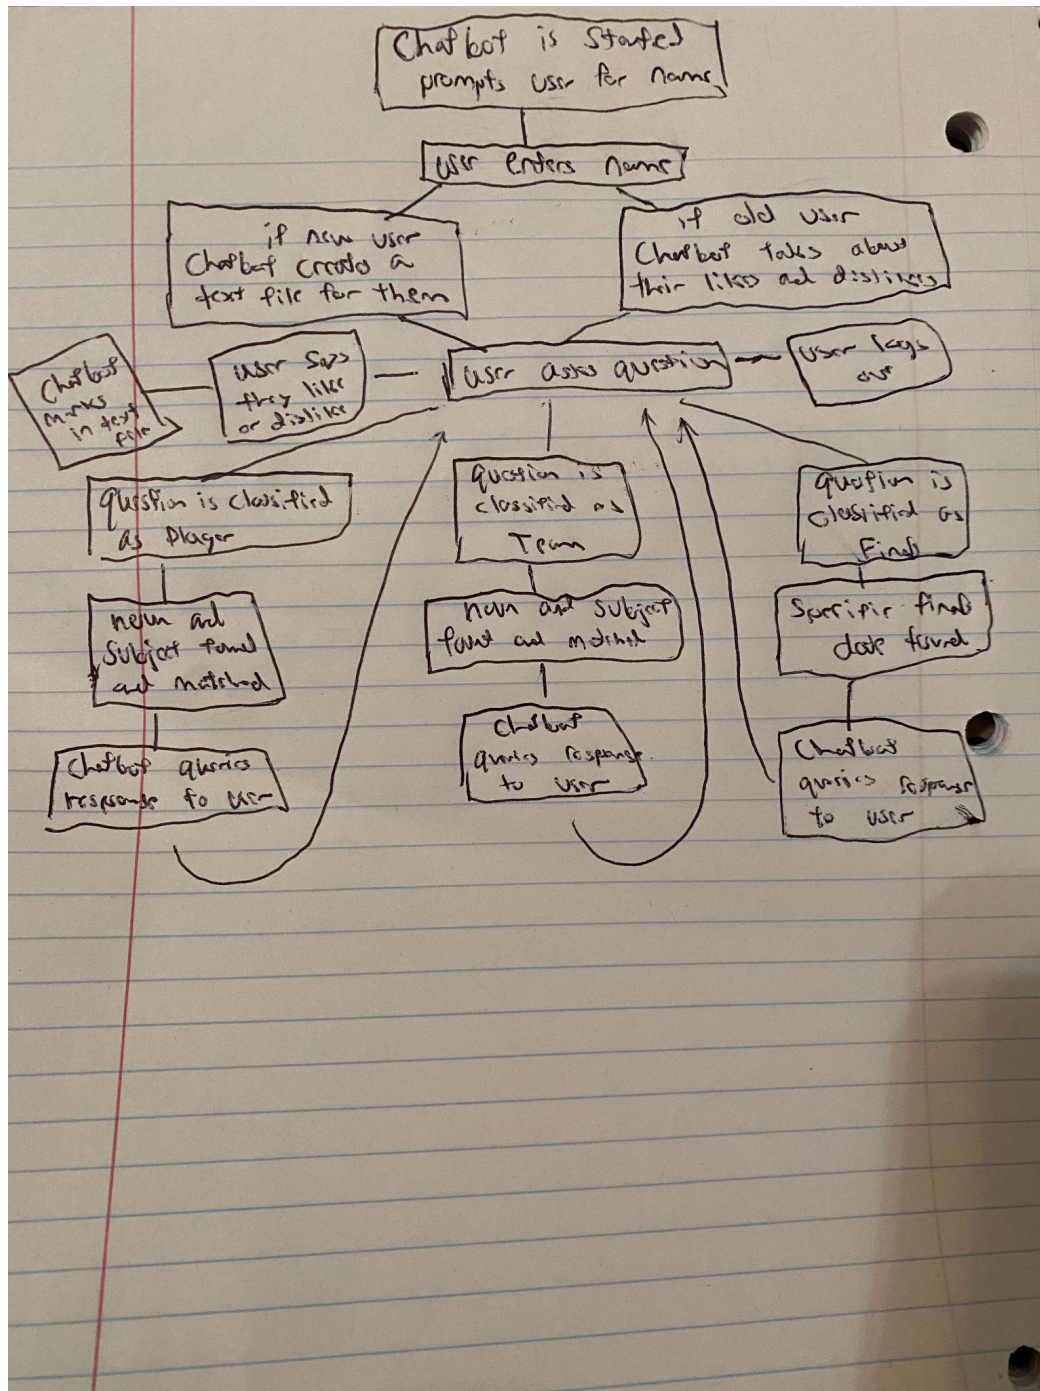 Chatbot is Started
prompts user for name
user enters name
if new user
Chatbot creates a
text file for them
if old user
Chatbot talks about
their likes and dislikes
Chatbot
marks
in text
file
user says
they like
or dislike
user asks question
user logs
out
question is classified
as Player
question is
classified as
Team
question is
classified as
Finals
noun and
Subject found
and matched
noun and subject
found and matched
Specific finals
date found
Chatbot queries
response to user
Chatbot
queries response
to user
Chatbot
queries response
to user